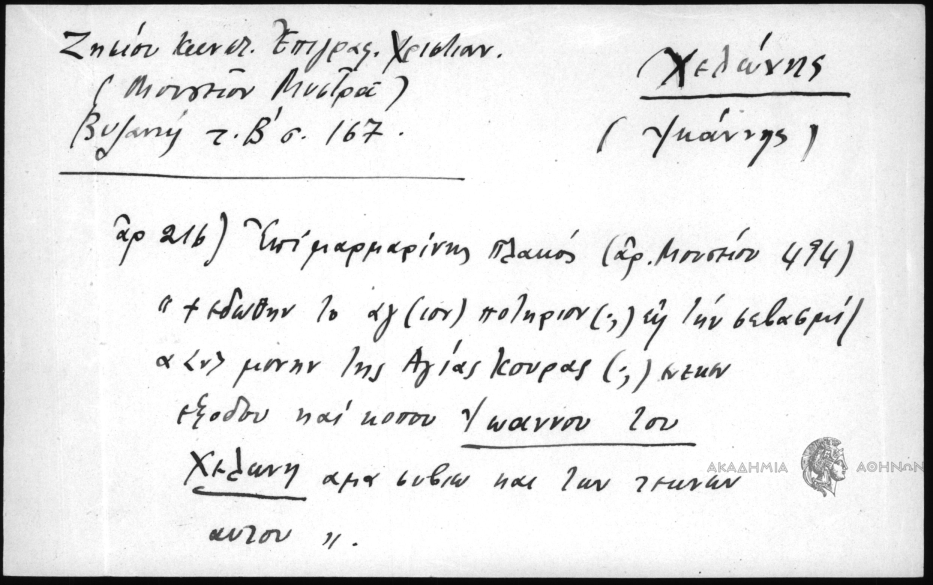 Ζησίου Κωνστ. Ἐπιγραφ. Χριστιαν.
(Μουσεῖον Μυστρᾶ)
Βυζαντὶς τ. Β' σ. 167.
Χελώνης
(Ἰωάννης)
ἀρ 216) Ἐπὶ μαρμαρίνης πλακός (ἀρ. Μουσείου 494)
" + εδωθην το αγ(ιον) ποτηριον (;) εις την σεβασμί/
α μονην της Αγίας Κουρας (;)
εξοδου καί κοπου Ἰωαννου του
Χελωνη αμα συβιω και των τεκνων
αυτου ".
ΑΚΑΔΗΜΙΑ ΑΘΗΝΩΝ